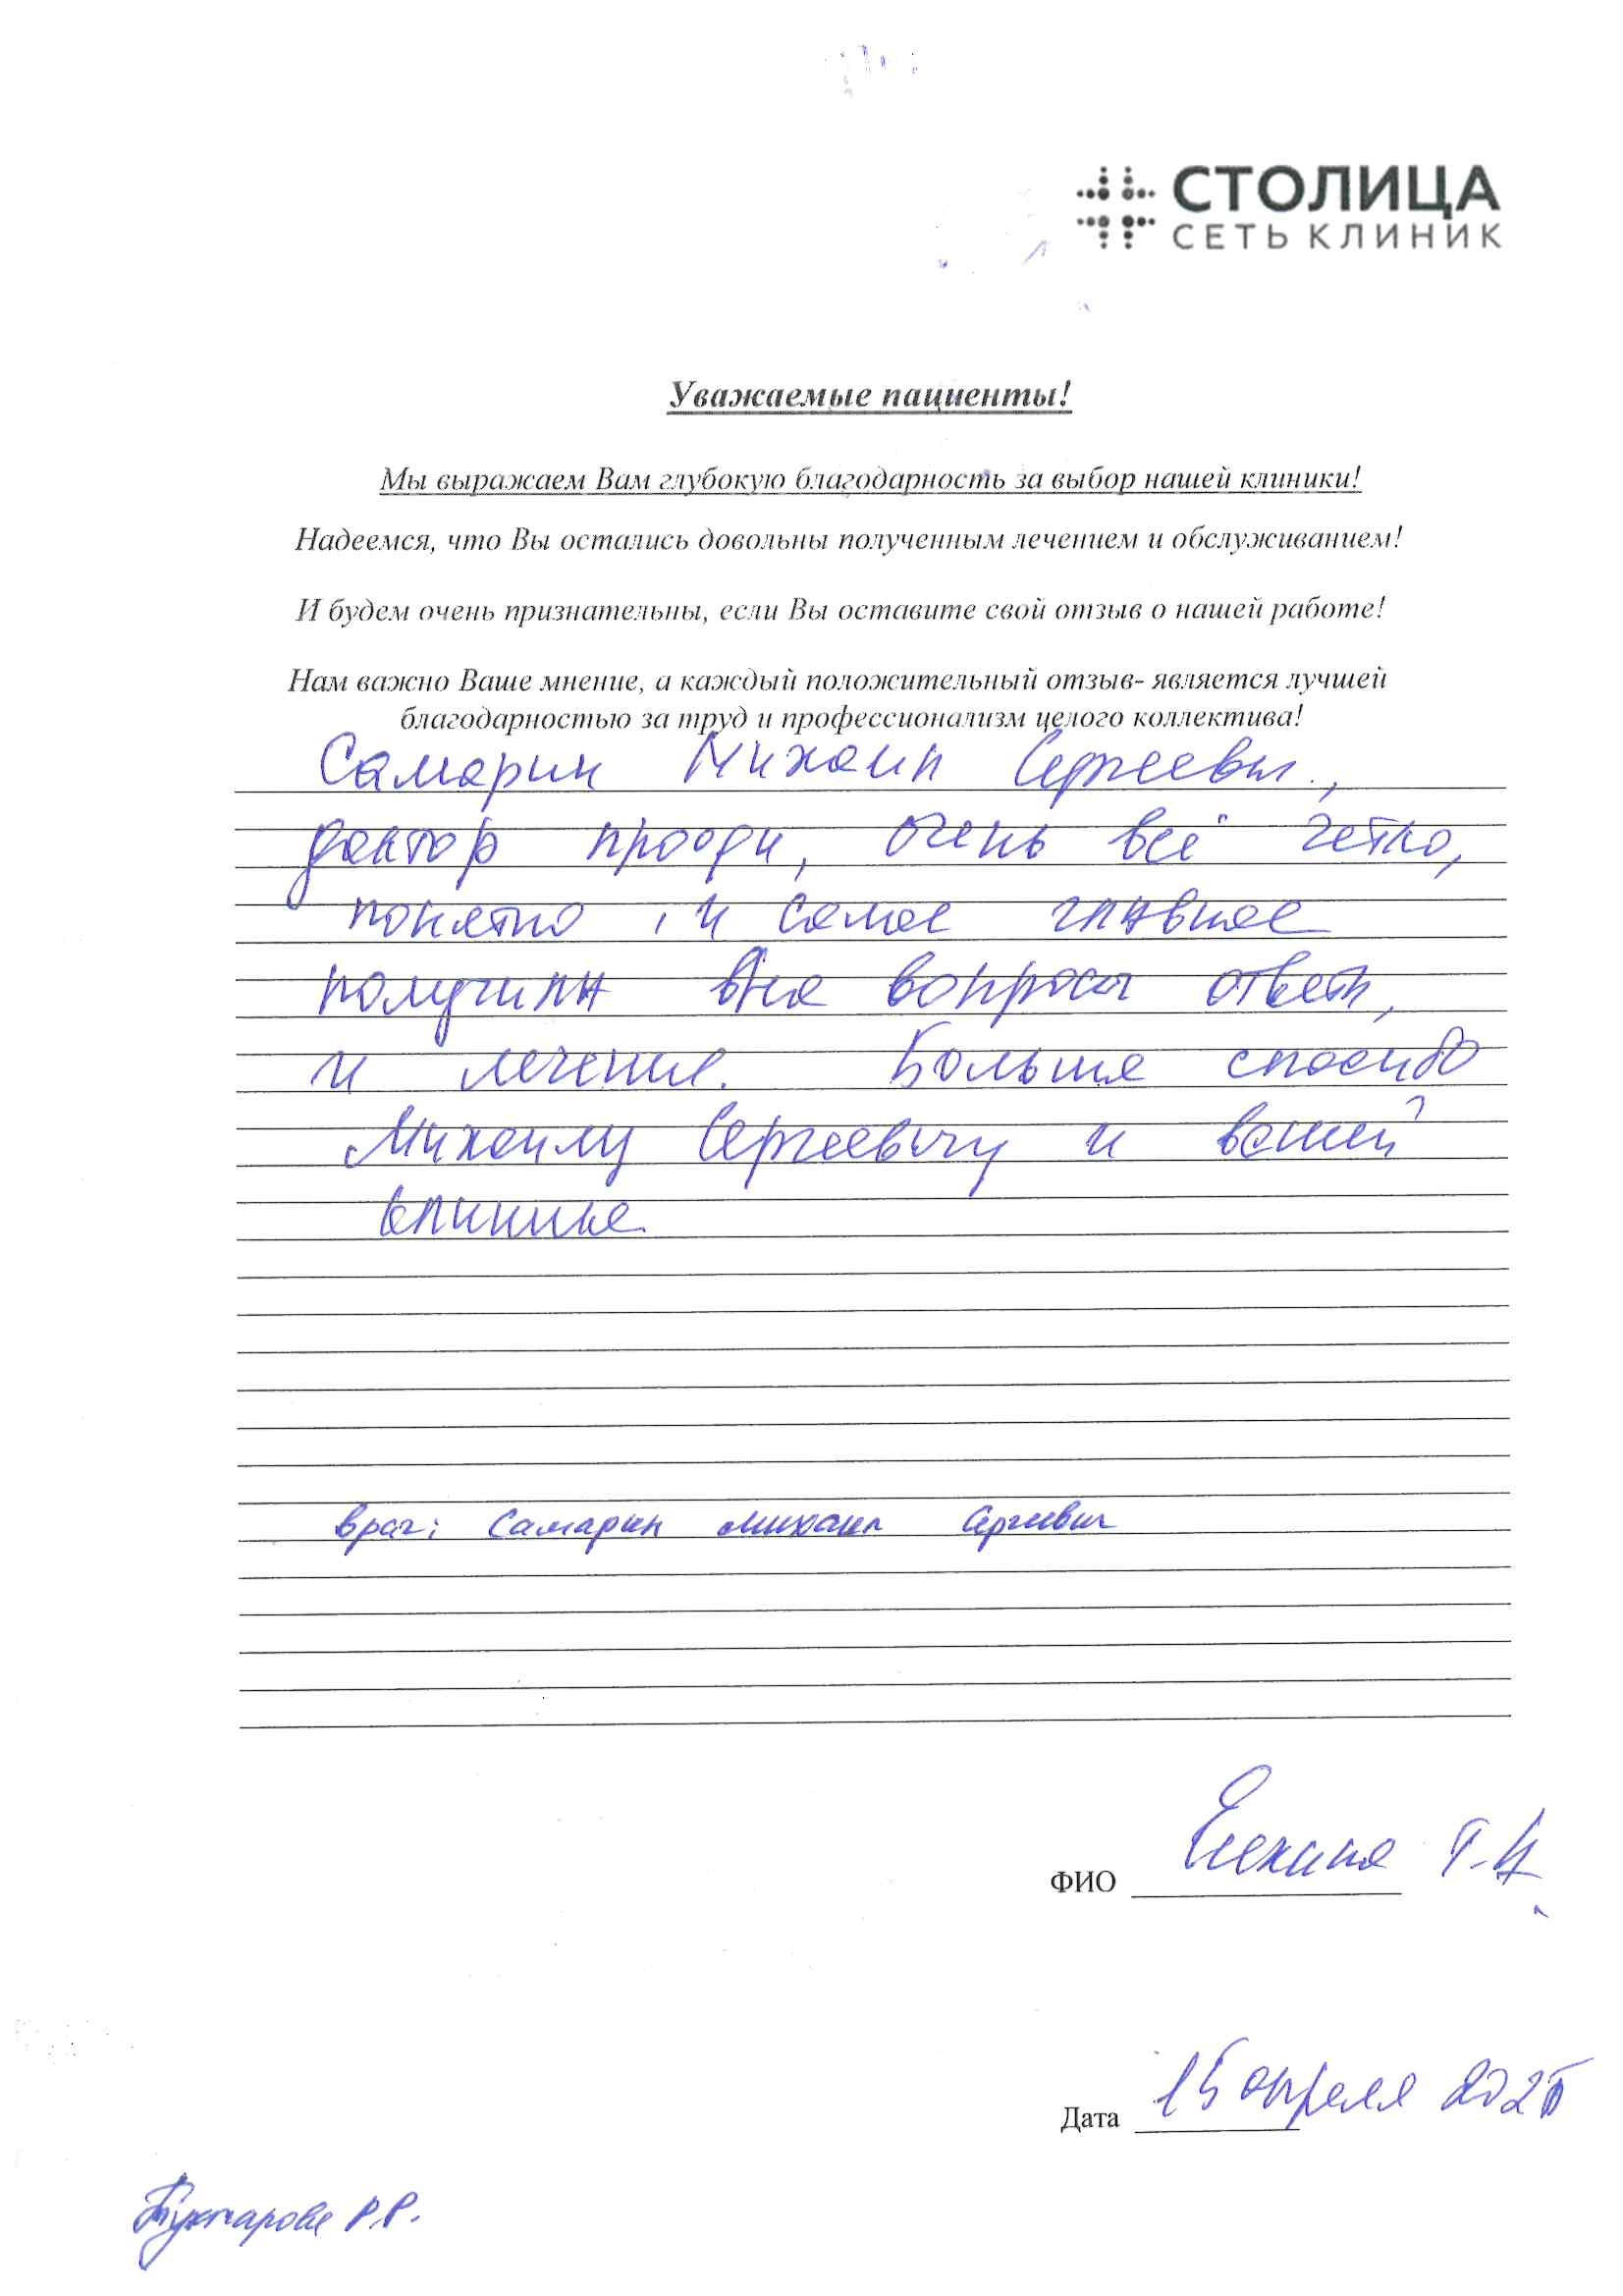 СТОЛИЦА
СЕТЬ КЛИНИК
Уважаемые пациенты!
Мы выражаем Вам глубокую благодарность за выбор нашей клиники!
Надеемся, что Вы остались довольны полученным лечением и обслуживанием!
И будем очень признательны, если Вы оставите свой отзыв о нашей работе!
Нам важно Ваше мнение, а каждый положительный отзыв- является лучшей
благодарностью за труд и профессионализм целого коллектива!
Самарин Михаил Сергеевич,
доктор, очень всё четко,
понятно, и самое главное
получила на вопросы ответы,
и лечение. Большое спасибо
Михаилу Сергеевичу и вашей
клинике
врач: Самарин Михаил Сергеевич
ФИО Т.Н.
Дата 15 апреля 2025
Р.Р.